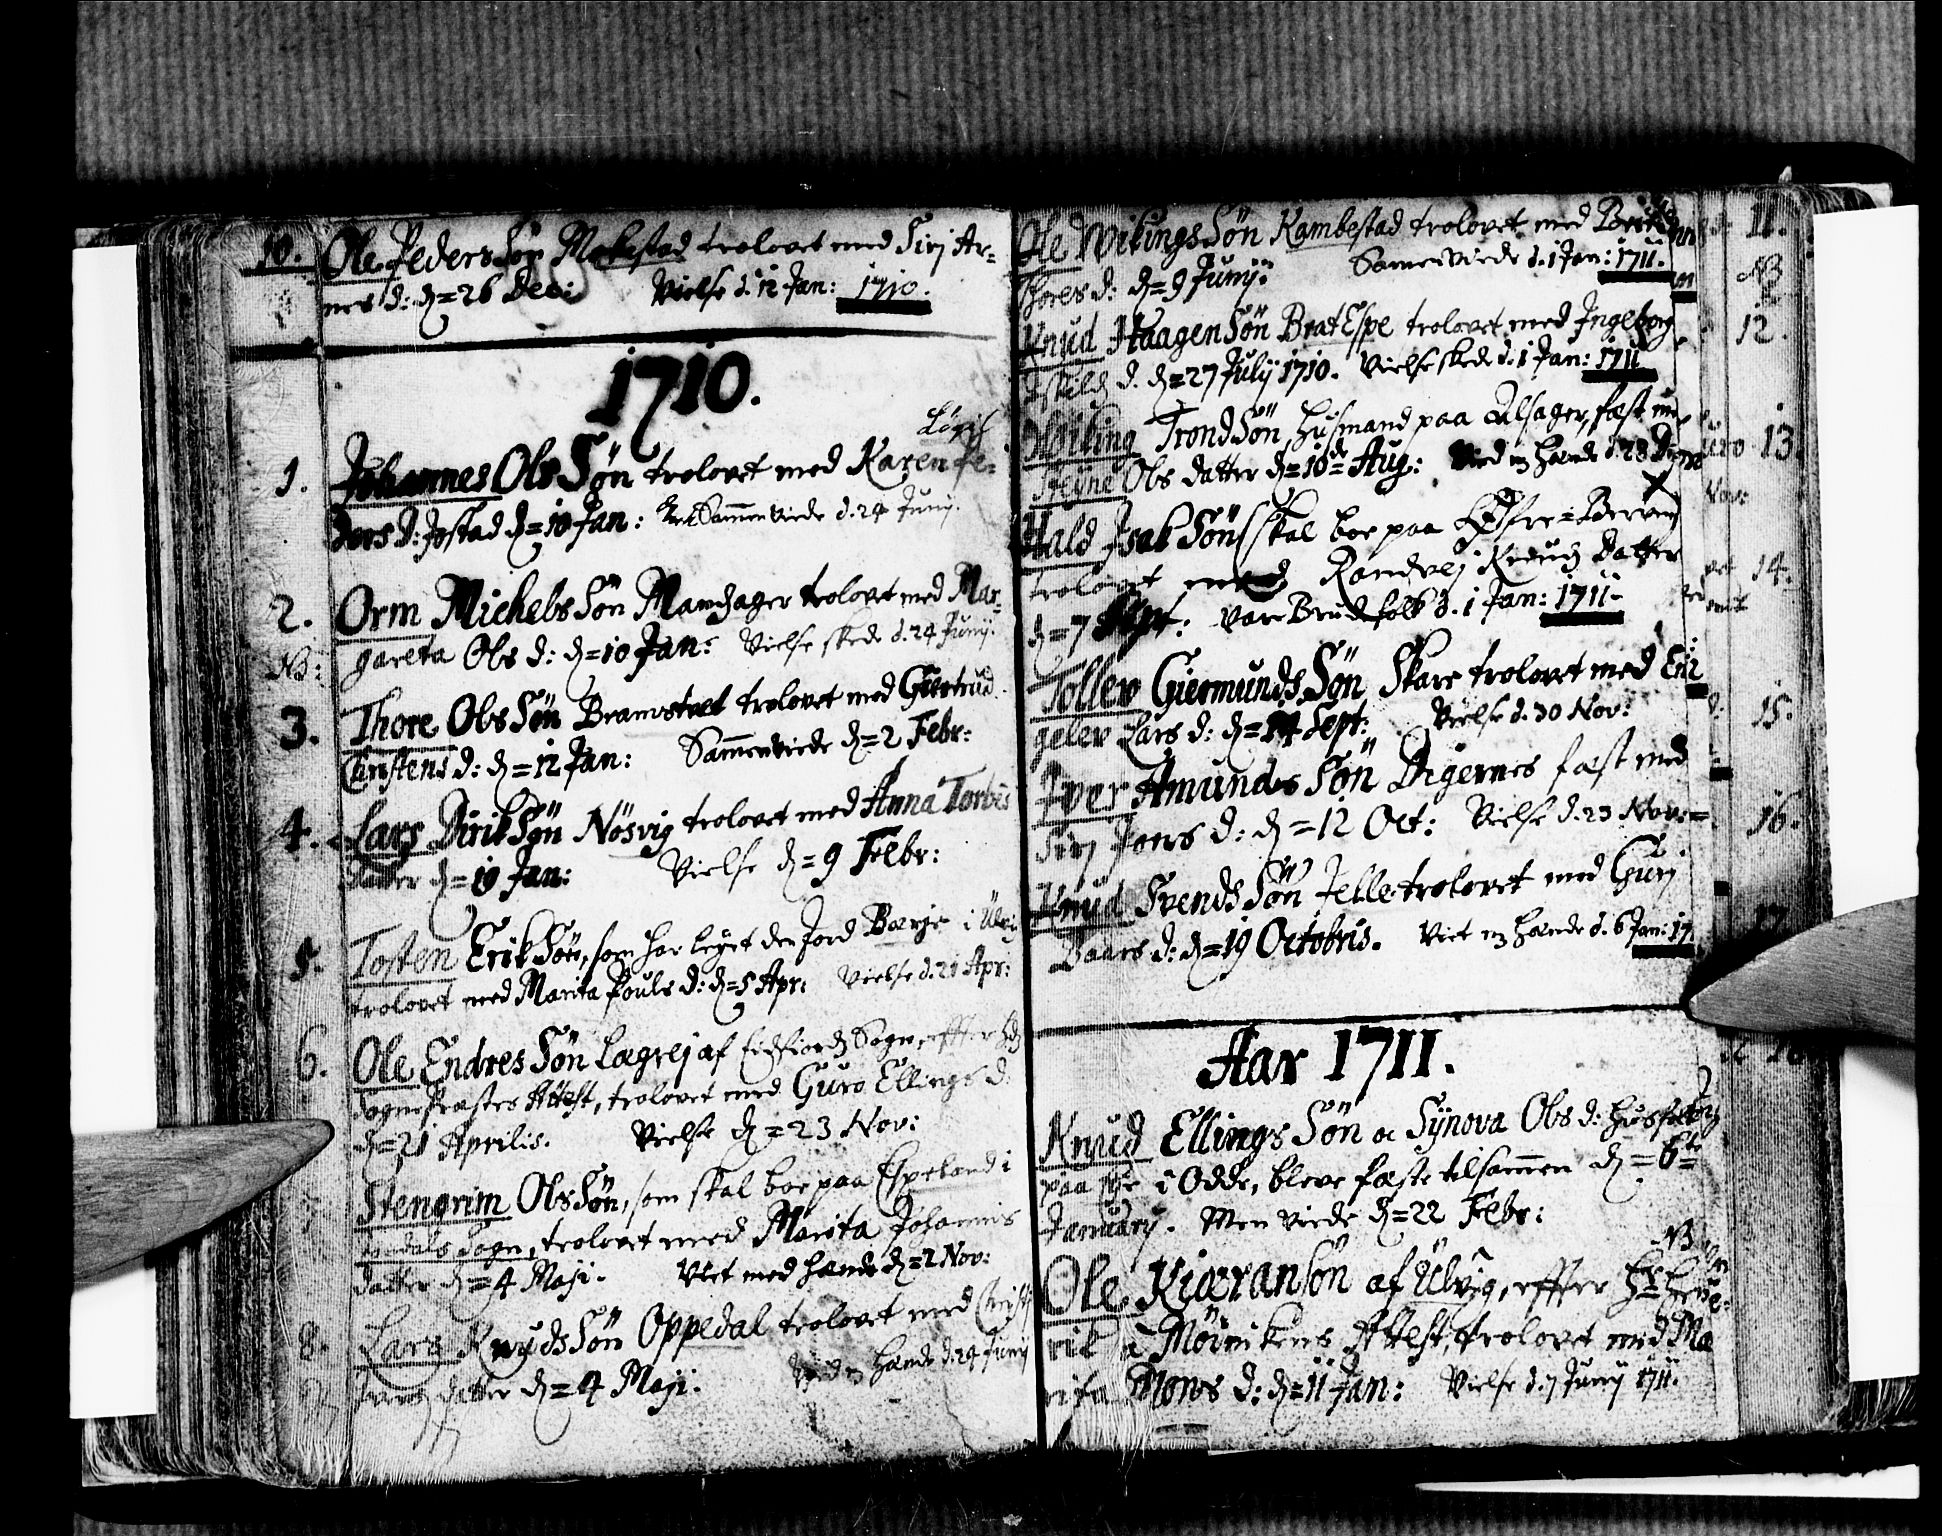 10. Ole PedersSøn Mokestad trolovet med Sirj Ar=
nes d: d=26 Dec: Vielse d. 12 Jan: 1710.
1710.
1. Johannes OlsSøn trolovet med Karen Pe=
ders d: Jostad d=10 Jan: Sammenviede d. 24 Junij.
2. Orm MichelsSøn Mandsager trolovet med Mar=
NB: gareta Ols d: d=10 Jan: Vielse skede d. 24 Junij.
3. Thore OlsSøn trolovet med Giertrud
Christens d: d=12 Jan: Sammenviede d=2 Febr:
4. Lars DirikSøn Nösvig trolovet med Anna Torbis
datter d=19 Jan: Vielse d=9 Febr:
5. Tosten ErikSøn, som har leyet den Jord i Ulvig
trolovet med Marita Pouls d: d=5 Apr: Vielse d. 21 Apr:
6. Ole EndresSøn Lægrej af Eidfiords Sogn, effter
SognePræstes Attest, trolovet med Guro Ellings d:
d=21 Aprilis. Vielse d=23 Nov:
7. Stengrim OlsSøn, som skal boe paa Espeland i
Sogn, trolovet med Marita Johannis
datter d=4 Maji. Viet med hænde d=2 Nov:
8. Lars KnudsSøn Oppedal trolovet med
datter d=4 Maji. hænde d. 24 Junij
Ole VikingsSøn Kambestad trolovet med 11.
Thores d: d=9 Junij. Sammenviede d. 1 Jan: 1711. NB
Knud HaagenSøn BratEspe trolovet med Ingeborg 12.
d. d=27 Julij 1710. Vielse skede d. 1 Jan: 1711
Wiking TrondSøn, Husmand paa Alsager, fæst med 13.
Ols datter d=10de Aug: Vied m hænde d. 28 Nov:
Hald JsakSøn (skal boe paa
trolovet med Randvej Knuds datter 14.
d=7 Sept: vare Brudefolk d. 1 Jan: 1711.
Tollev GiermundsSøn Skare trolovet med En
gelev Lars d: d=14 Sept: Vielse d. 30 Nov: 15.
Iver AmundsSøn Digernes fæst med
Sirj Jons d: d=12 Oct: Vielse d. 23 Nov: 16.
Knud SvendsSøn Jelle trolovet med Gurj
Baars d: d=19 Octobris. Viet m hænde d. 6 Jan: 17 17.
Aar 1711.
Knud EllingsSøn oc Synova Ols d:
paa i Odde, bleve fæste tilsammen d=6te
Januarij. Men viede d=22 Febr:
NB
Ole KiæranSøn af Ulvig, effter Hr
à Møinikens Attest, trolovet med Ma
rita Mons d: d=11 Jan: Vielse d. 7 Junij 1711.